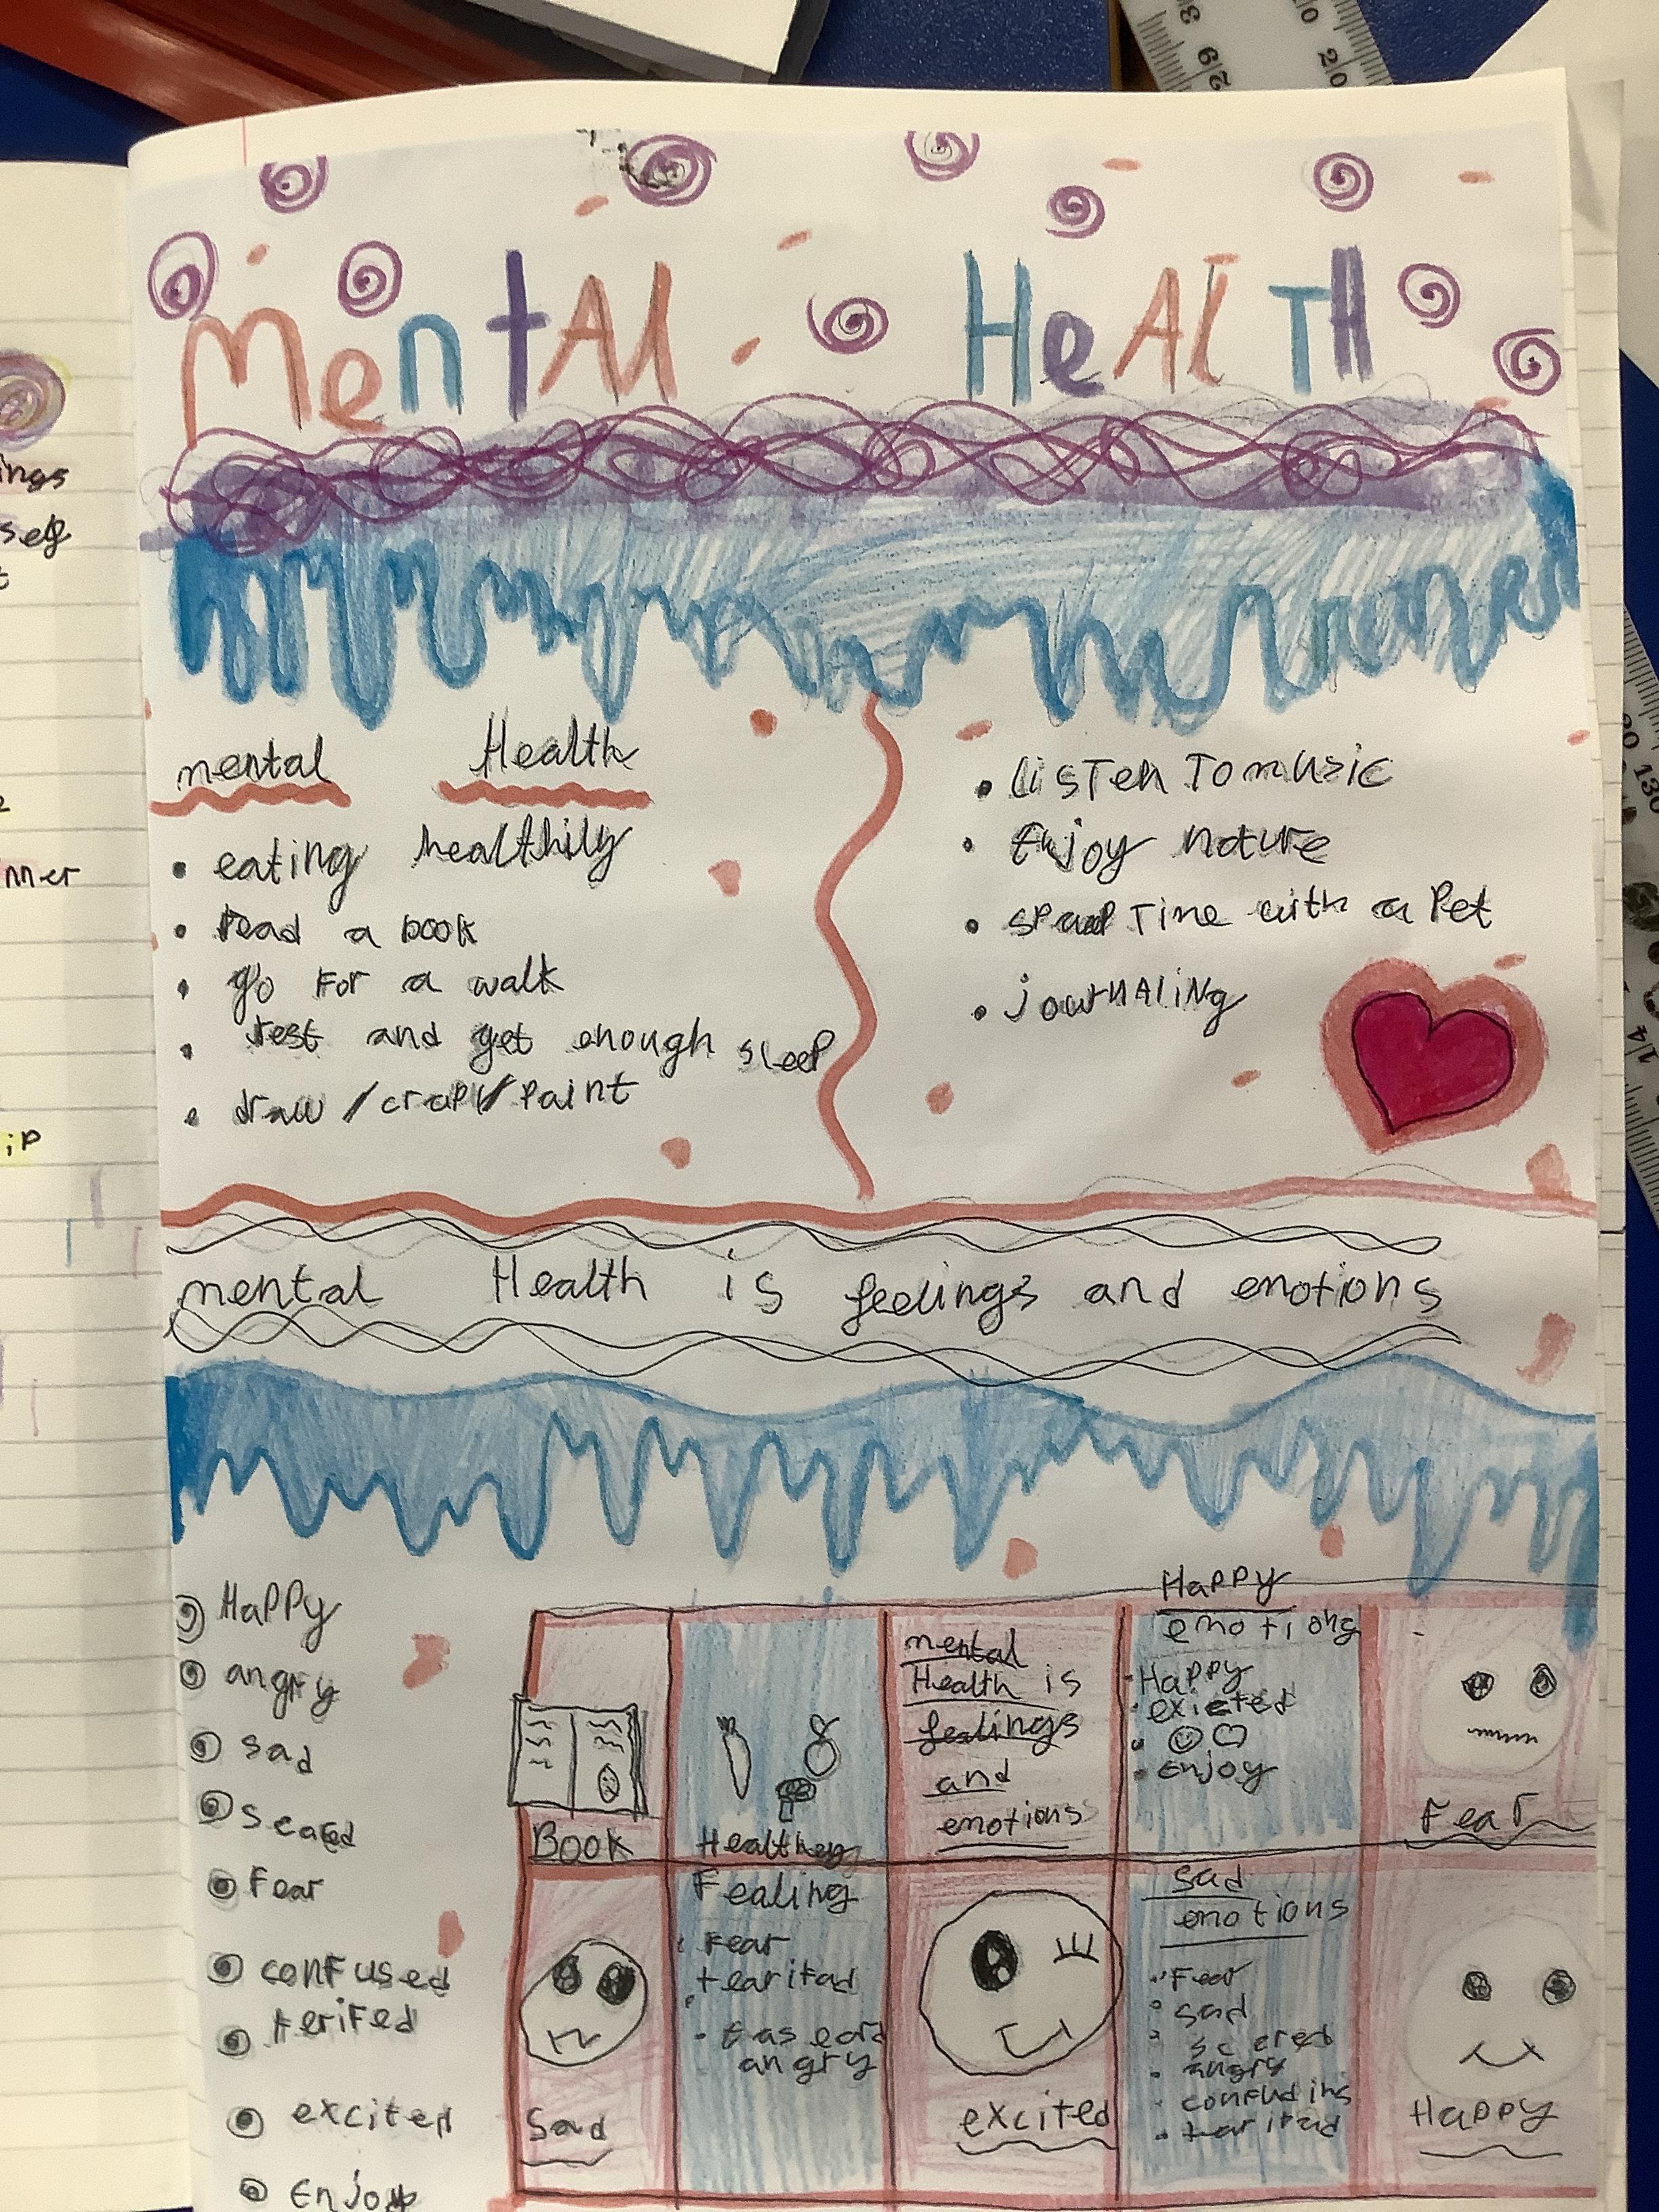 MentAl HeAlTH
mental Health
• eating healthily
• read a book
• go for a walk
• rest and get enough sleep
• draw /craft/paint
• listen To music
• Enjoy nature
• Time with a Pet
• journaling
mental Health is feelings and emotions
Happy
angry
sad
scared
Fear
confused
terifed
excited
Enjoy
BOOK
Healthey
mental
Health is
feelings
and
emotions
Happy
emotions
• Happy
• exicted
• Enjoy
Fear
Sad
Fealing
• Fear
tearifad
angry
excited
Sad
emotions
• Fear
• sad
• scered
• angry
• tearifad
Happy
ings
self
nner
ip